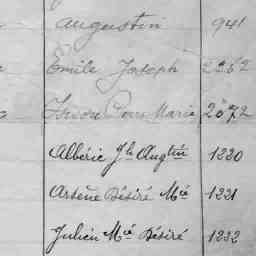 Augustin 941
Emile Joseph 2262
Isidore Marie 2072
Albéric Jh Augtin 1230
Arsène Désiré Mie 1231
Julien Mie Désiré 1232